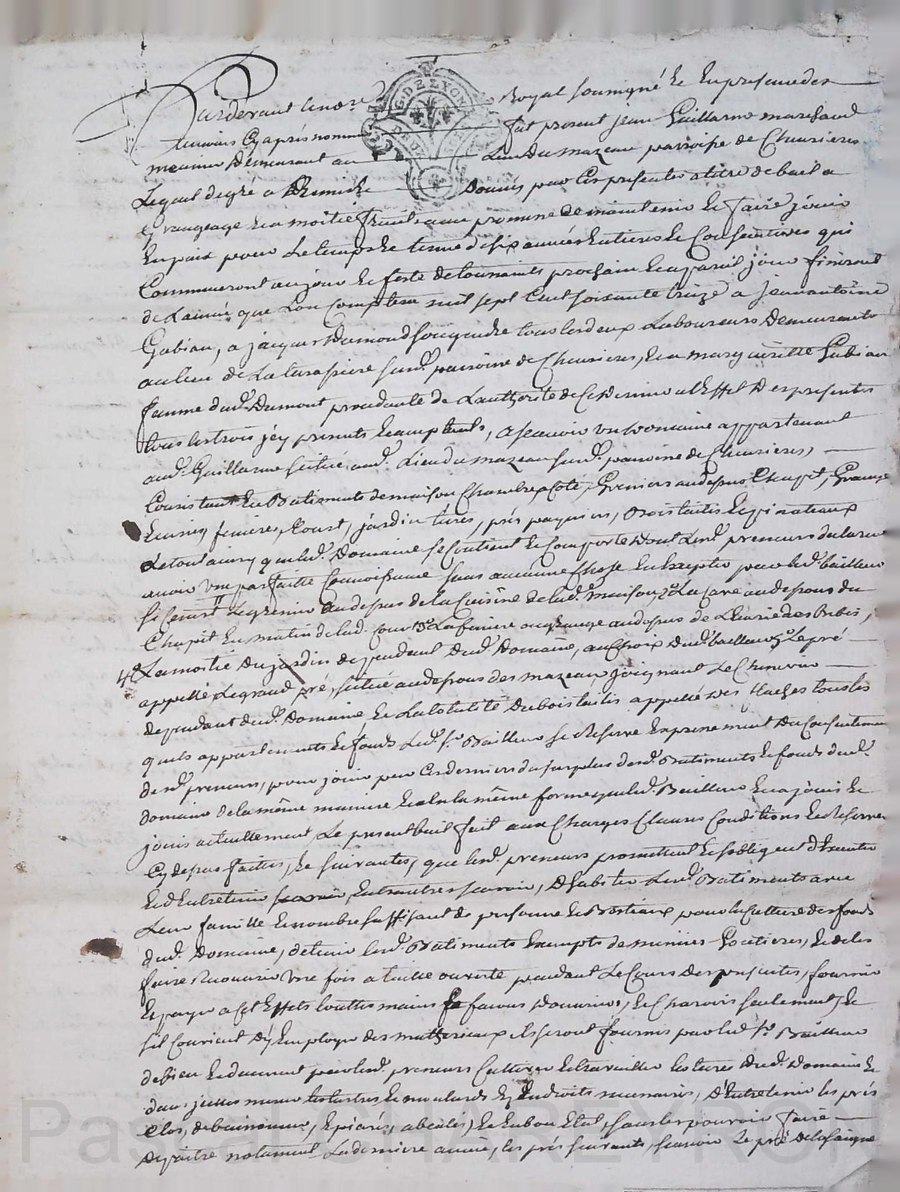 Pardevant le no.re Royal soussigné et en presence des
temoins cy après nommés fut present jean Guillaume marchand
meunier Demeurant au Lieu Du mazeau parroisse de Chevrieres
Lequel de gré a Remis et Donné par ces presentes a titre de bail a
grangeage et a moitié fruits avec promesse de maintenir et faire jouir
En paix pour Le temps et terme de six années Entieres et Consecutives qui
Commenceront au jour et feste de toussaints prochain et a pareil jour finiront
de L'année que L'on Comptera mil sept Cent soixante treize a jean antoine
Gubian, a jacques Dumond son gendre tous les deux Laboureurs Demeurants
au lieu de La sus.d. parroisse de Chevrieres, et a marguerite Gubian
femme dud. Dumont procedante de L'authorité de Ce Dernier a L'Effet Des presentes
tous les trois icy presents et acceptants, a scavoir un Domaine appartenant
aud. Guillaume scitué aud. Lieu du mazeau sus.d. parroisse de Chevrieres,
Consistant En Batiments de maison Chambre a Coté, Greniers au dessus Chapit, Grange
Ecuries, feniere, Court, jardin terres, prés paquiers, Bois taillis et pinateaux
Le tout ainsy que led. Domaine se Contient et Comporte Dont Lesd. preneurs declarent
avoir Une parfaitte Connoissance sans aucune Chose En Excepter que led. bailleur
Le grenier au dessus de la Cuisine de lad. maison, 2º La Cave au dessous du
Chapit En matin de lad. Cour 3º La feniere ou grange au dessus de L'Ecurie des Brebis,
4º La moitié Du jardin dependant dud. Domaine, au Choix dud. bailleur 5º Le pré
appellé Le grand pré, scitué au dessous des mazeau joignant Le Chemin
dependant dud. Domaine et La totalité Du bois taillis appellé Des Haches tous les
quels appartements et fonds Led. s.r Bailleur se Reserve Expressement Du Consentement
desd. preneurs, pour jouir par Ces derniers du surplus desd. Batiments et fonds dud.
domaine de la même maniere et de la même forme que led. Bailleur En a joui et
jouit actuellement Le present bail fait aux Charges Clauses Conditions et Reserves
Cy dessus faittes, et suivantes, que lesd. preneurs promettent et s'obligent d'Executer
Et d'Entretenir, Entr'autres scavoir, D'habiter Lesd. Batiments avec
Leur famille En nombre suffisant de personnes et Bestiaux pour la Culture des fonds
dud. Domaine, de tenir lesd. Batiments Exempts de menues Goutieres, et de les
faire Recouvrir une fois a tuille ouverte pendant Le Cours Des presentes, fournir
et payer a Cet Effet touttes mains façons D'ouvriers, et Charois seulement, et
s'il Convient D'y Employer des matheriaux ils seront fournis par led. s.r Bailleur
de bien et duement par lesd. preneurs Cultiver et travailler les terres dud. Domaine
dans justes Endroits necessaires, D'Entretenir les prés
Clos, de buissonnés, Epierés, abeallés, et En bon Etat, sans les pouvoir faire
Depaitre notament La derniere année, les prés suivants, scavoir Le pré de la saigne
Pascal CHAREYRON